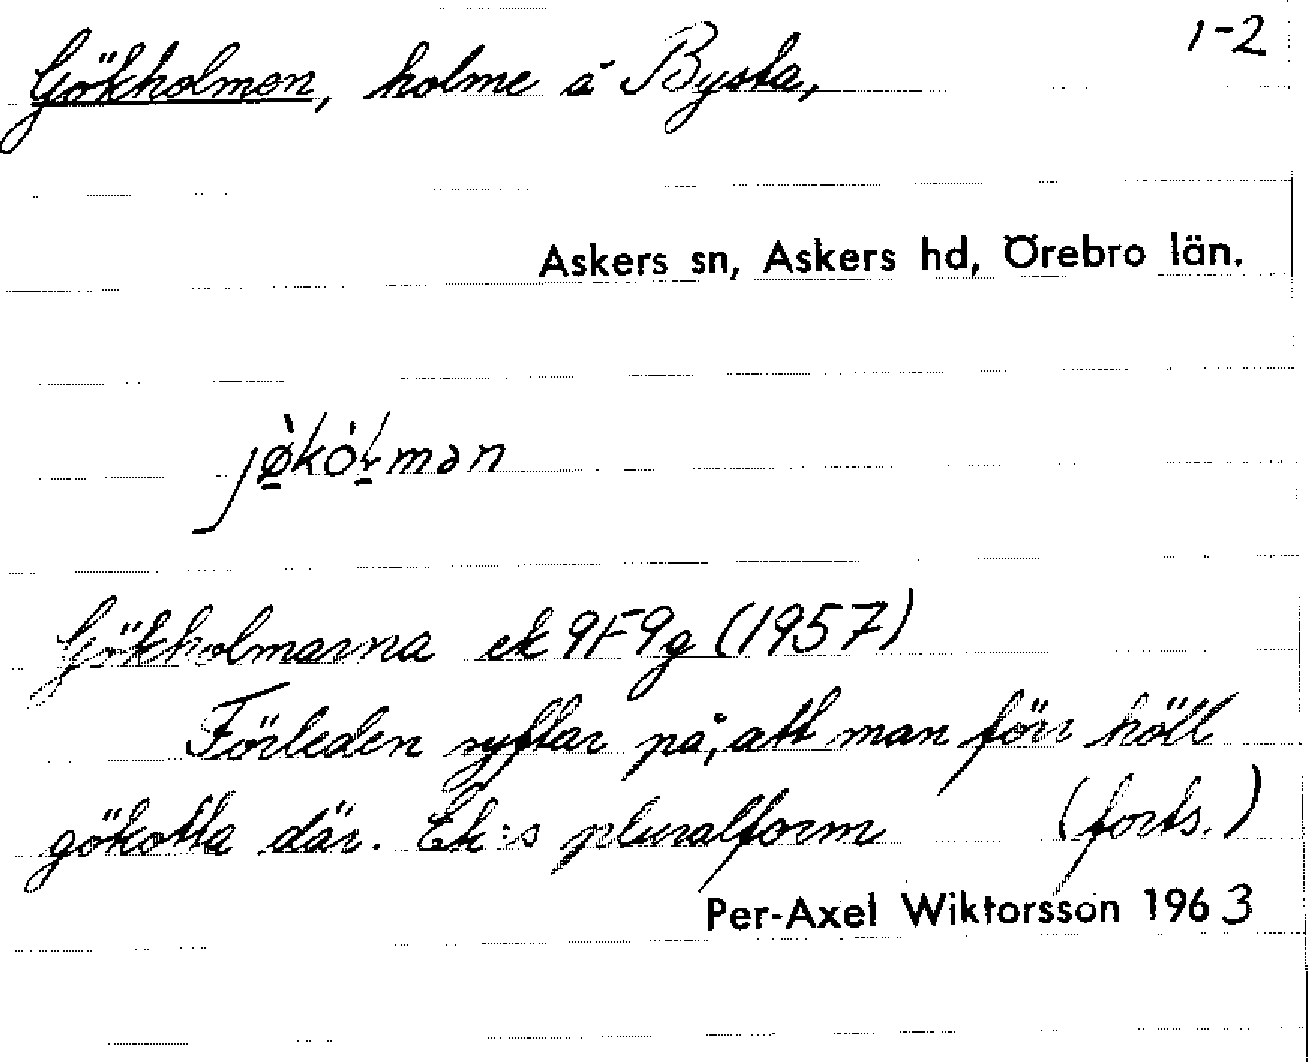 1-2
Gökholmen, holme å Bysta,
Askers sn, Askers hd, Örebro län.
Gökholmarna ek 9F9g (1957)
Förleden syftar på, att man förr höll
gökotta där. Ek:s pluralform (forts.)
Per-Axel Wiktorsson 1963